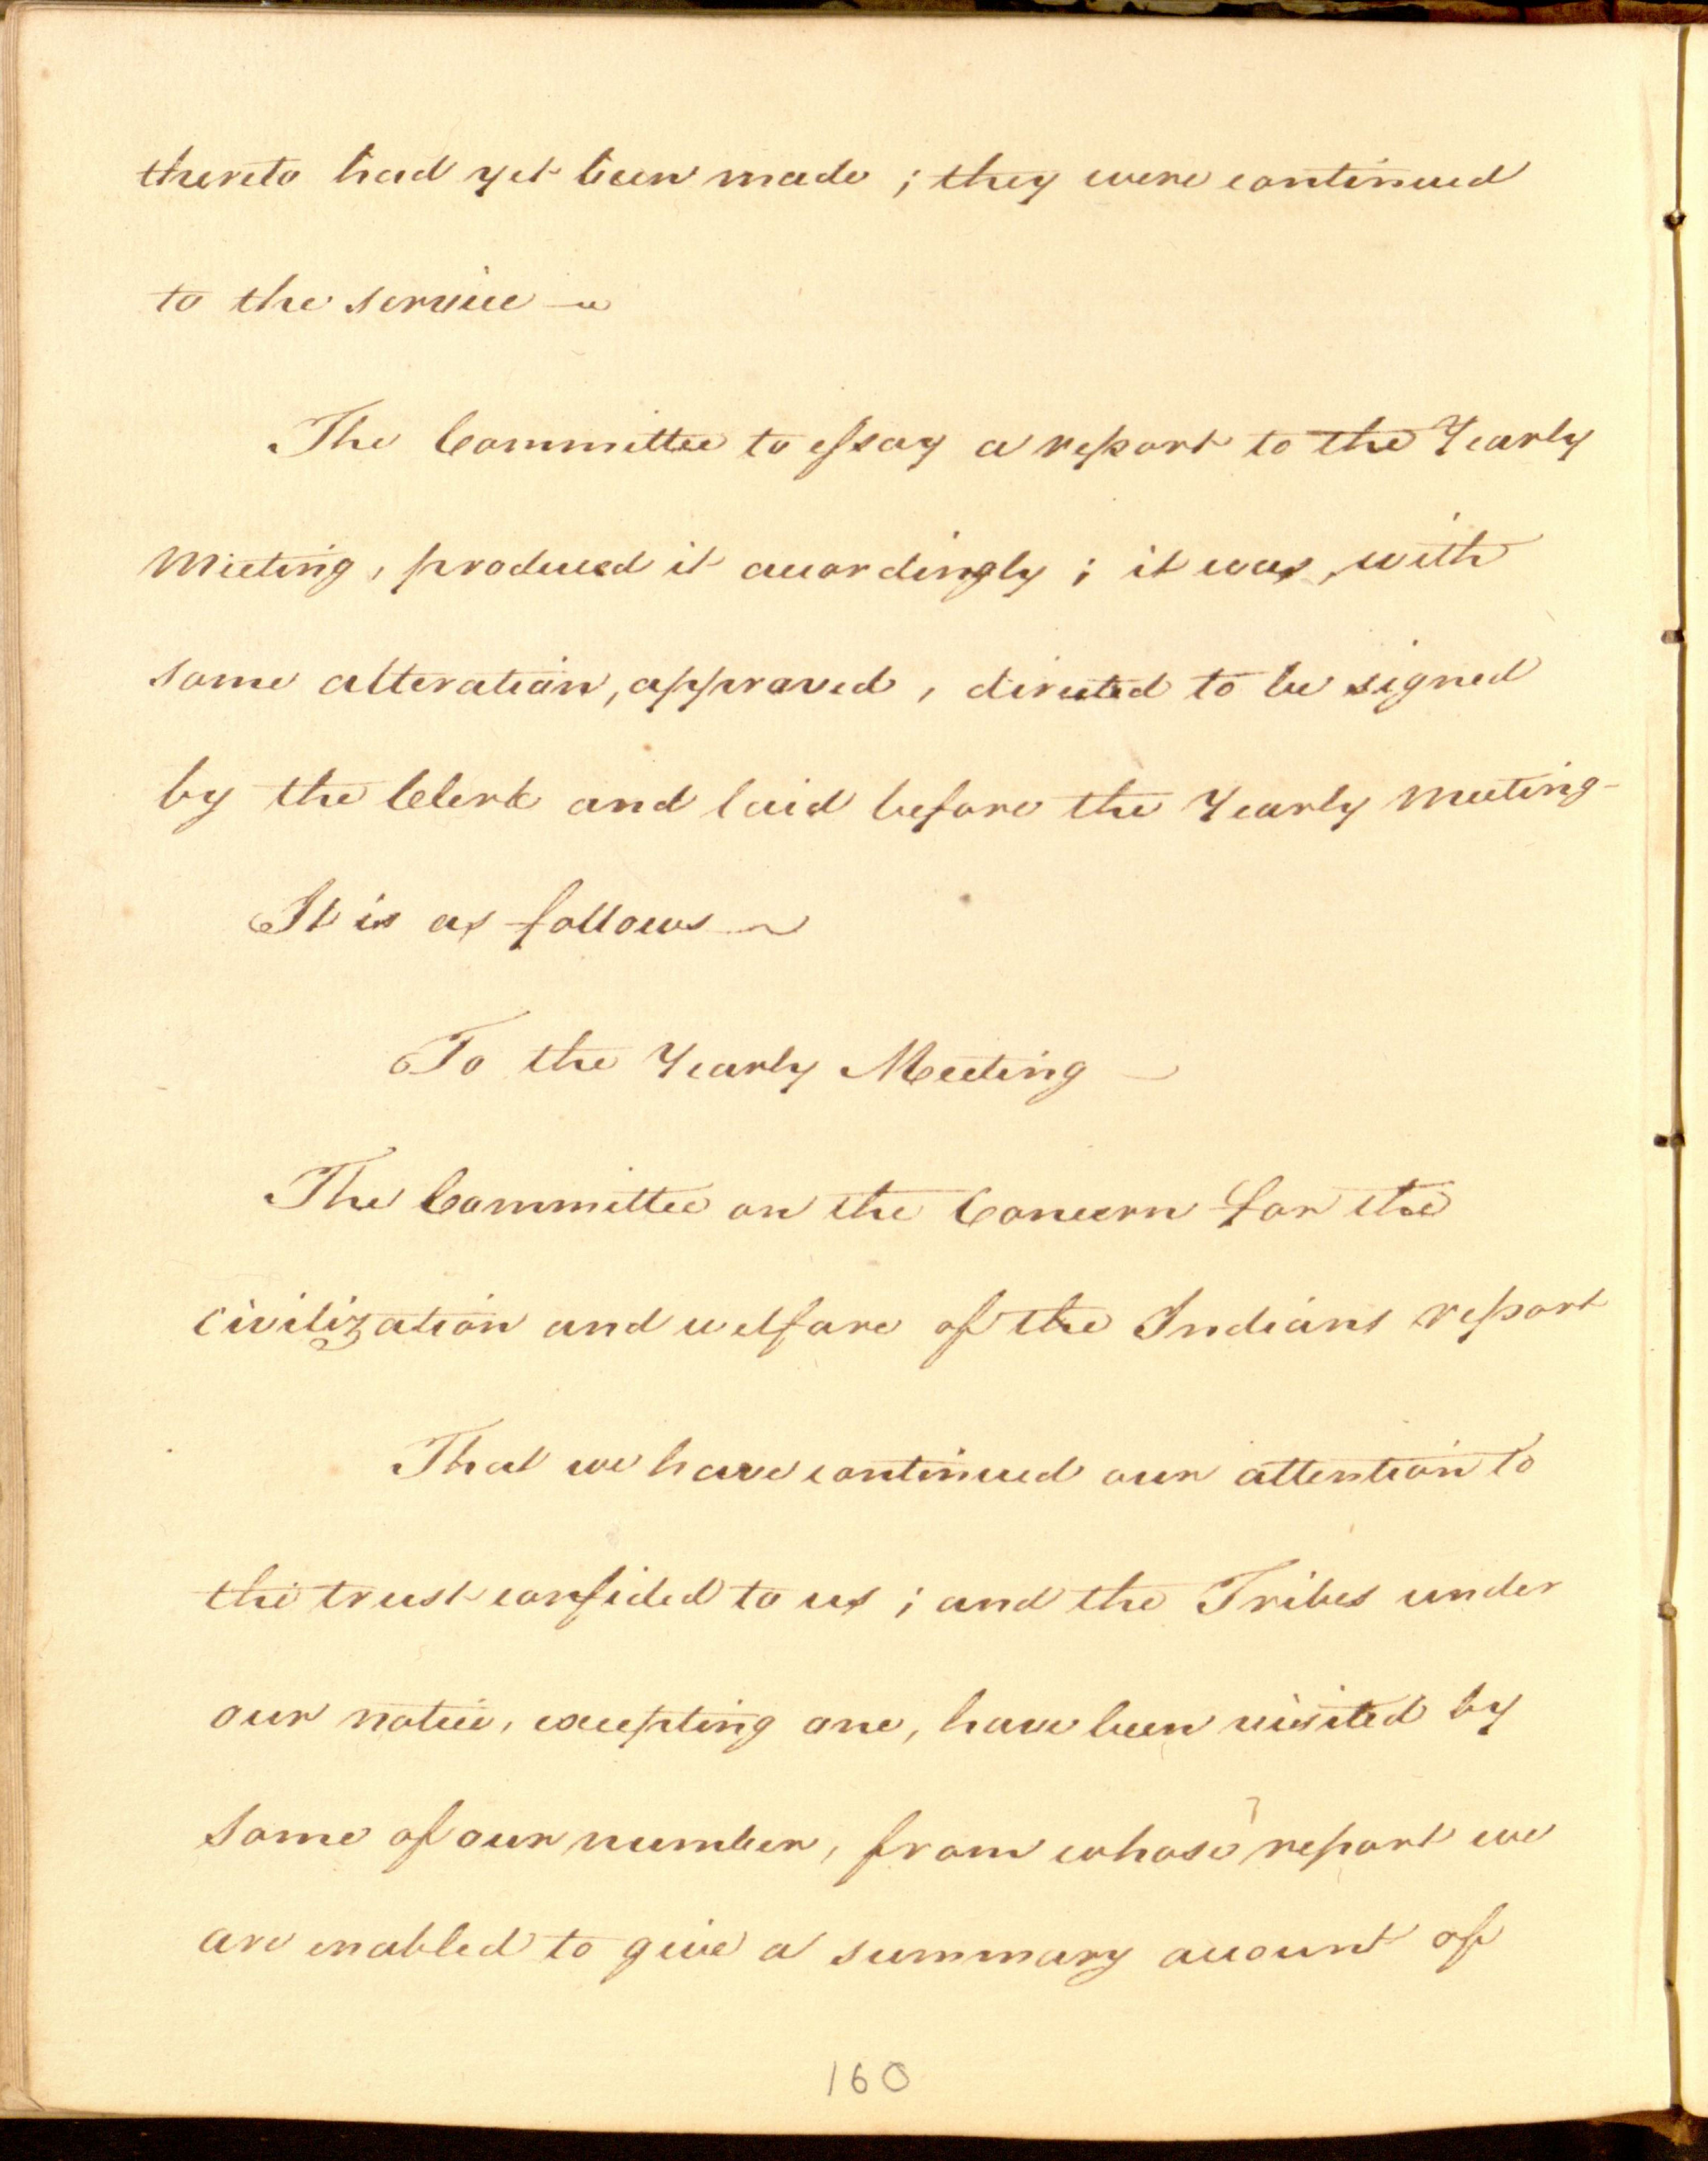 thereto had yet been made; they were continued
to the service —
The Committee to essay a report to the Yearly
Meeting, produced it accordingly; it was, with
some alteration, approved, directed to be signed
by the Clerk and laid before the Yearly Meeting-
It is as follows —
To the Yearly Meeting —
The Committee on the Concern for the
civilization and welfare of the Indians report
That we have continued our attention to
the trust confided to us; and the Tribes under
our notice, excepting one, have been visited by
some of our number, from whose report we
are enabled to give a summary account of
160